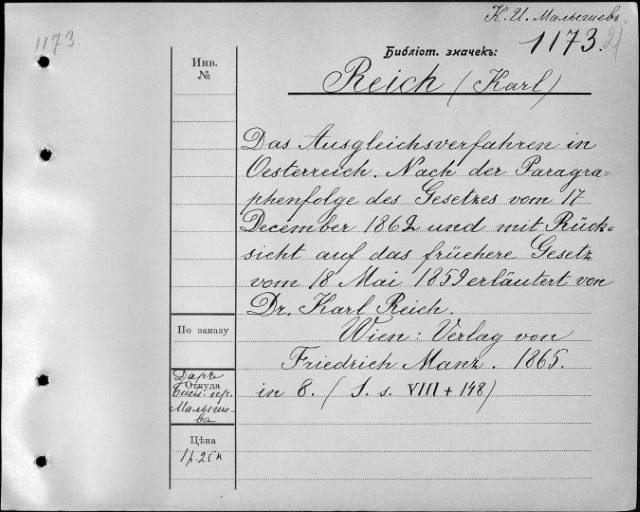 К. И. Малышевъ
1173.
1173. 2)
Библіот. значекъ:
Инв.
№
Reich (Karl)
Das Ausgleichsverfahren in
Oesterreich. Nach der Paragra=
phenfolge des Gesetzes vom 17
December 1862 und mit Rück=
sicht auf das frühere Gesetz
vom 18 Mai 1859 erläutert von
Dr. Karl Reich.
По заказу
Wien: Verlag von
Friedrich Manz. 1865.
Даръ
Откуда
in 8. (S. s. VIII + 148)
Малыше-
ва
Цѣна
1 р. 25 к